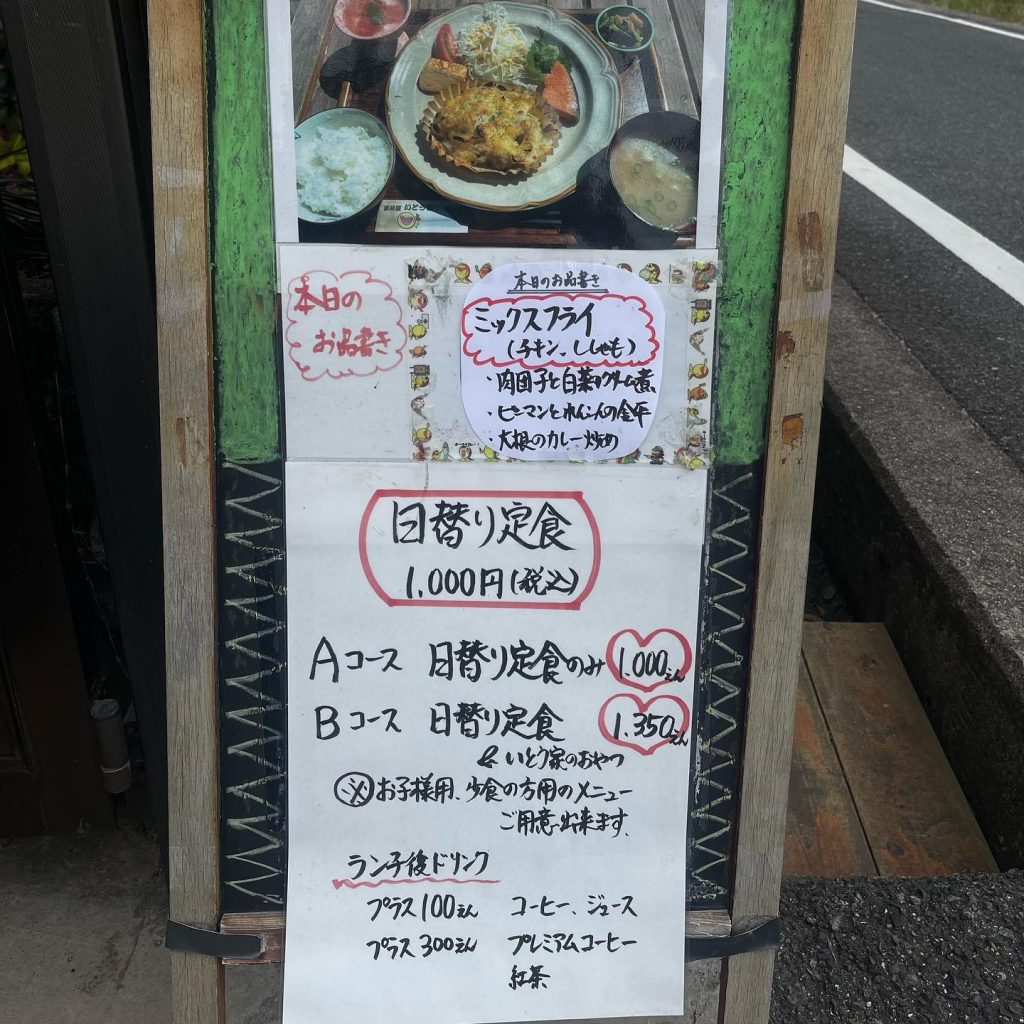 いとう家
本日の
お品書き
本日のお品書き
ミックスフライ
(チキン、ししゃも)
・肉団子と白菜のクリーム煮
・ピーマンとれんこんの金平
・大根のカレー炒め
日替り定食
1,000円(税込)
Aコース 日替り定食のみ 1.000えん
Bコース 日替り定食 1.350えん
& いとう家のおやつ
※お子様用、少食の方用のメニュー
ご用意出来ます。
ランチ後ドリンク
プラス100えん コーヒー、ジュース
プラス300えん プレミアムコーヒー
紅茶